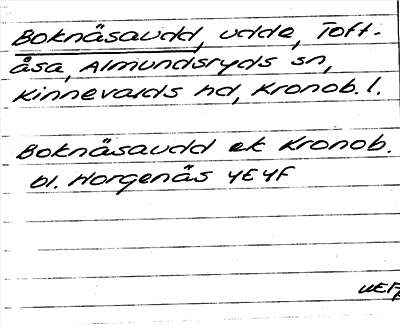 Boknäsaudd, udde, Toft-
åsa, Almundsryds sn,
Kinnevalds hd, Kronob. l.
Boknäsaudd ek Kronob.
bl. Horgenäs 4E4f